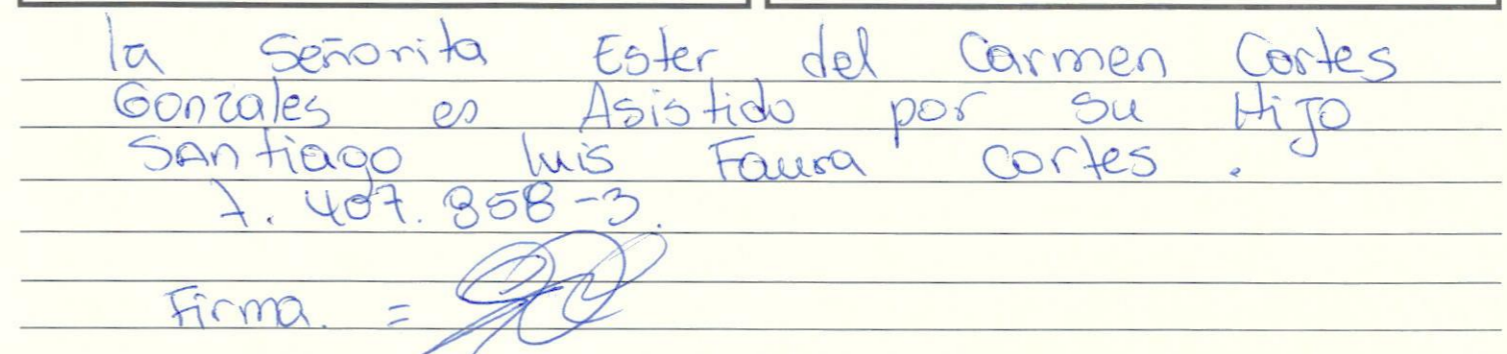 la Señorita Ester del Carmen Cortes
Gonzales es Asistido por su Hijo
Santiago luis Faura cortes.
7.407.858-3.
Firma. =